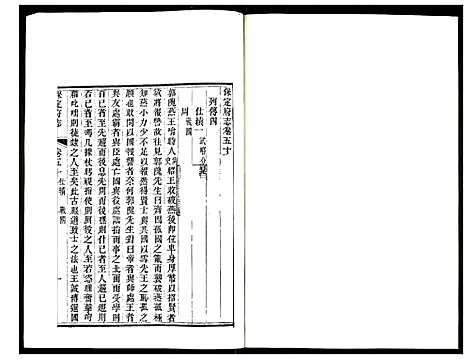 保定府志卷五十
列傳四
仕績一
周 戰國
郭隗燕王噲時人 昭王收破燕後卽位卑身厚幣以招賢者
欲將報讐故往見郭隗先生曰齊因孤國之亂而襲破燕孤極
知燕小力少不足以報然得賢士與共國以雪先王之恥孤之
願也敢問以國報讐者奈何郭隗先生對曰帝者與師處王者
與友處霸者與臣處亡國與役處詘指而事之北面而受學則
百己者至先趨而後息先問而後嘿則什己者至人趨己趨則
若己者至馮几據杖眄視指使則厮役之人至若恣睢奮擊
則徒隸之人至矣此古服道致士之法也王誠博選國
保定府志 卷五十 仕績 戰國 一